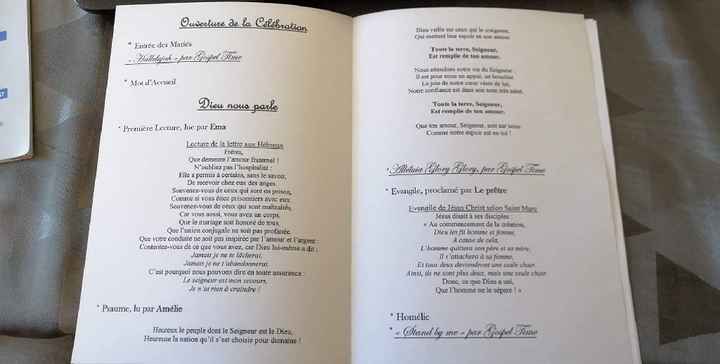 Ouverture de la Célébration
* Entrée des Mariés
« Hallelujah » par Gospel Time
* Mot d'Accueil
Dieu nous parle
* Première Lecture, lue par Ema
Lecture de la lettre aux Hébreux
Frères,
Que demeure l'amour fraternel !
N'oubliez pas l'hospitalité :
Elle a permis à certains, sans le savoir,
De recevoir chez eux des anges.
Souvenez-vous de ceux qui sont en prison,
Comme si vous étiez prisonniers avec eux.
Souvenez-vous de ceux qui sont maltraités,
Car vous aussi, vous avez un corps.
Que le mariage soit honoré de tous,
Que l'union conjugale ne soit pas profanée.
Que votre conduite ne soit pas inspirée par l'amour et l'argent :
Contentez-vous de ce que vous avez, car Dieu lui-même a dit :
Jamais je ne te lâcherai,
Jamais je ne t'abandonnerai.
C'est pourquoi nous pouvons dire en toute assurance :
Le seigneur est mon secours,
Je n'ai rien à craindre !
* Psaume, lu par Amélie
Heureux le peuple dont le Seigneur est le Dieu,
Heureuse la nation qu'il s'est choisie pour domaine !
Dieu veille sur ceux qui le craignent,
Qui mettent leur espoir en son amour.
Toute la terre, Seigneur,
Est remplie de ton amour.
Nous attendons notre vie du Seigneur :
Il est pour nous un appui, un bouclier.
La joie de notre cœur vient de lui,
Notre confiance est dans son nom très saint.
Toute la terre, Seigneur,
Est remplie de ton amour.
Que ton amour, Seigneur, soit sur nous
Comme notre espoir est en toi !
* Alléluia Glory Glory, par Gospel Time
* Evangile, proclamé par Le prêtre
Evangile de Jésus Christ selon Saint Marc
Jésus disait à ses disciples :
« Au commencement de la création,
Dieu les fit homme et femme.
A cause de cela,
L'homme quittera son père et sa mère,
Il s'attachera à sa femme,
Et tous deux deviendront une seule chair.
Ainsi, ils ne sont plus deux, mais une seule chair.
Donc, ce que Dieu a uni,
Que l'homme ne le sépare ! »
* Homélie
* « Stand by me » par Gospel Time